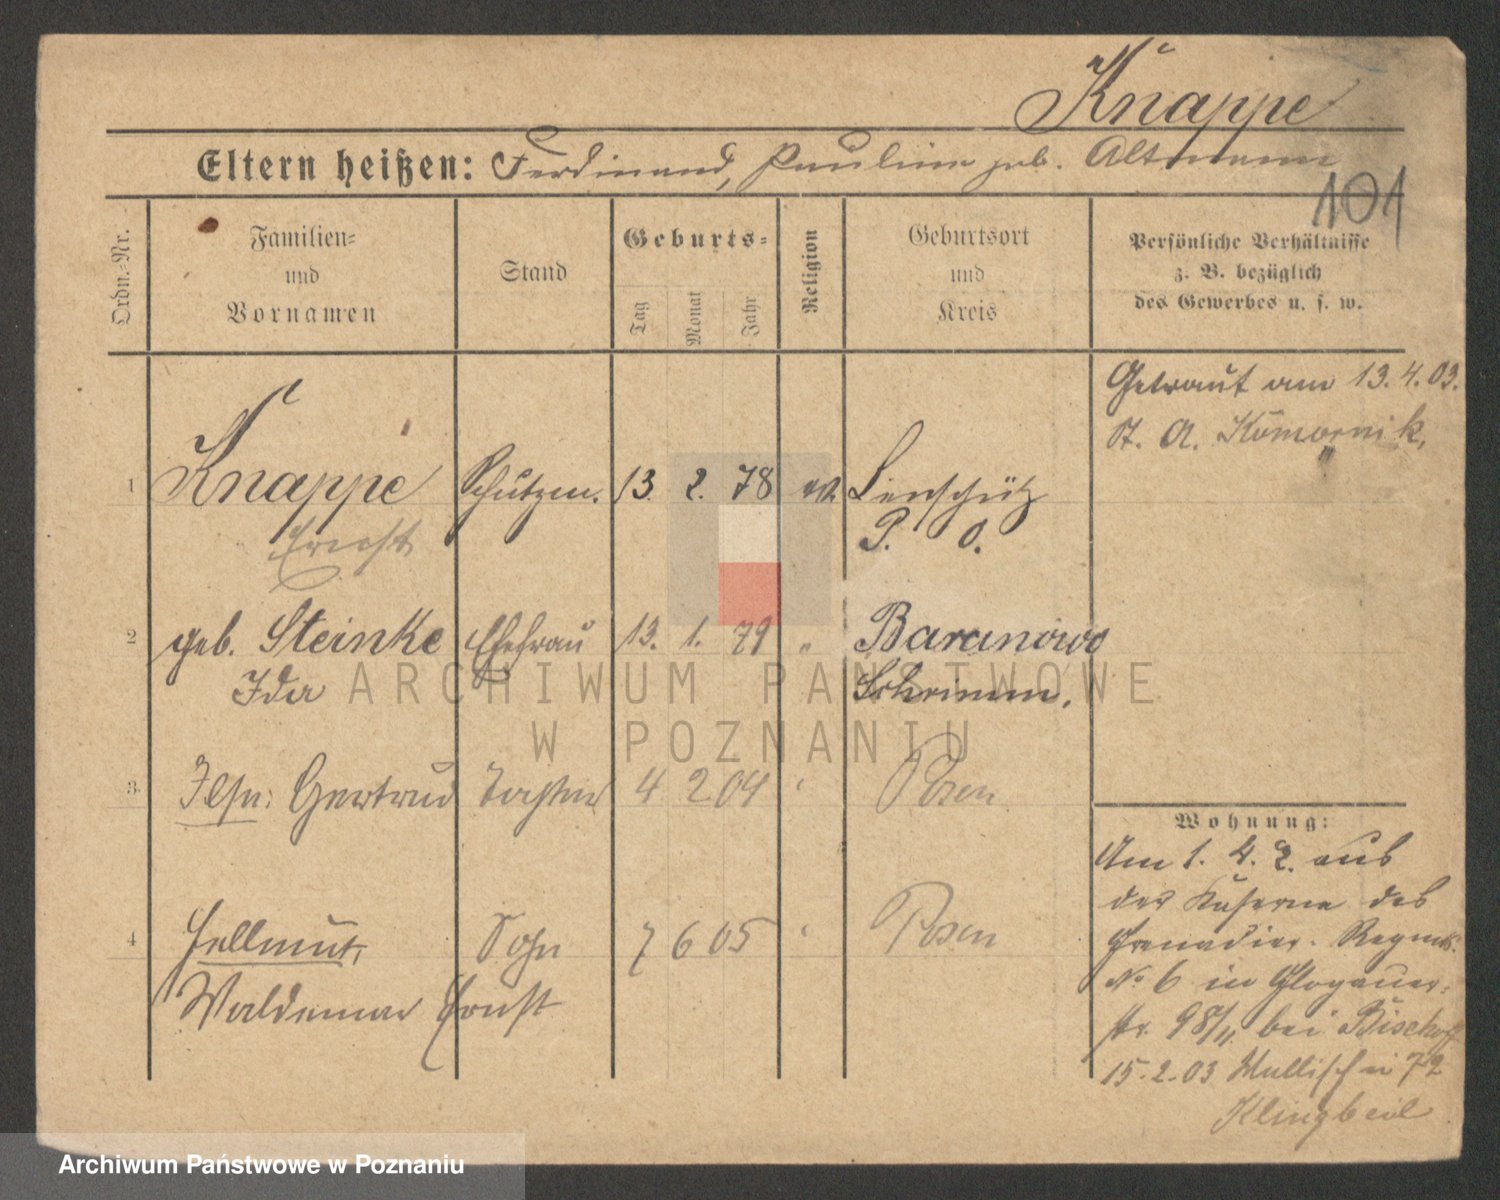 Knappe
Eltern heißen: Ferdinand, Pauline geb. Altmann
101
Ordn.-Nr.
Familien-
und
Vornamen
Stand
Geburts-
Tag
Monat
Jahr
Religion
Geburtsort
und
Kreis
Persönliche Verhältnisse
z. B. bezüglich
des Gewerbes u. s. w.
Getraut am 13.4.03.
St. A. Komornik,
1 Knappe Schutzm. 13. 2. 78 ev.
Ernst P. O.
2 geb. Steinke Ehefrau 13. 1. 79 " Baranowo
Ida Schrimm.
3 Ilse: Gertrud Tochter 4 2 04 " Posen
4 Hellmut, Sohn 7 6 05 " Posen
Waldemar Ernst
Wohnung:
Am 1. 4. 2. aus
der Kaserne des
Grenadier-Regmts.
No 6 in Glogauer-
str. 98/II bei Bischoff
15.2.03 72
Klingbeil
ARCHIWUM PAŃSTWOWE
W POZNANIU
Archiwum Państwowe w Poznaniu